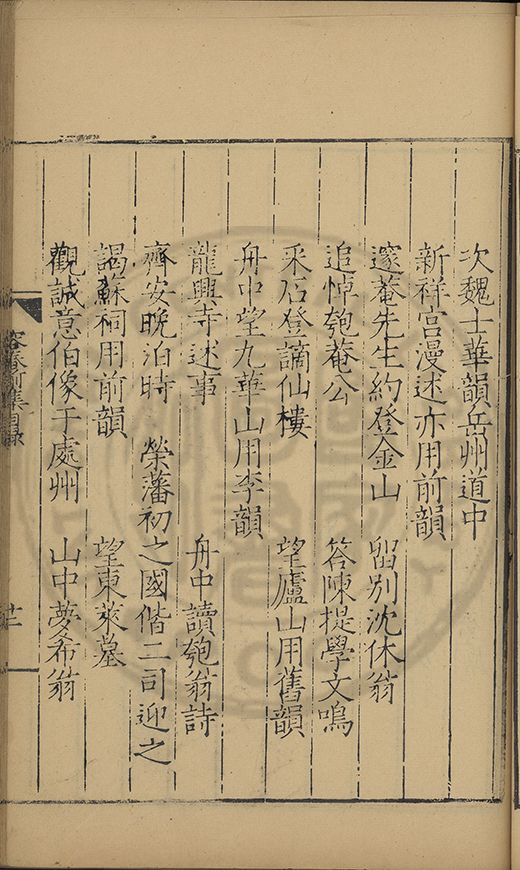 次魏士華韻岳州道中
新祥宮漫述亦用前韻
邃菴先生約登金山　留別沈休翁
追悼匏菴公　答陳提學文鳴
釆石登謫仙樓　望廬山用舊韻
舟中望九華山用李韻
龍興寺述事　舟中讀匏翁詩
齊安晚泊時　榮藩初之國偕二司迎之
謁蘇祠用前韻　望東萊墓
觀誠意伯像于處州　山中夢希翁
容春前集目錄